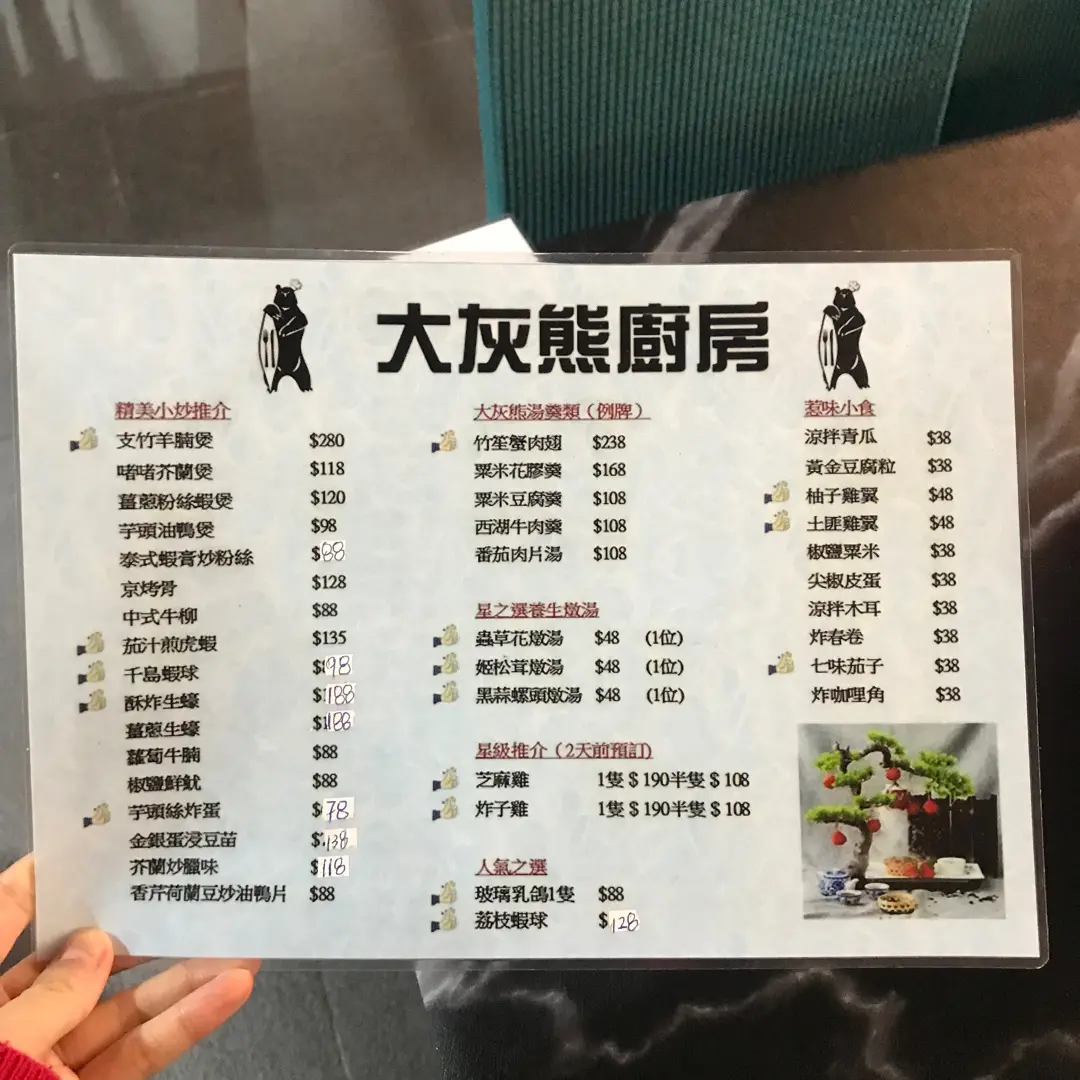 大灰熊廚房
精美小炒推介
支竹羊腩煲 $280
啫啫芥蘭煲 $118
薑蔥粉絲蝦煲 $120
芋頭油鴨煲 $98
泰式蝦膏炒粉絲 $88
京烤骨 $128
中式牛柳 $88
茄汁煎虎蝦 $135
千島蝦球 $198
酥炸生蠔 $188
薑蔥生蠔 $188
蘿蔔牛腩 $88
椒鹽鮮魷 $88
芋頭絲炸蛋 $78
金銀蛋浸豆苗 $138
芥蘭炒臘味 $118
香芹荷蘭豆炒油鴨片 $88
大灰熊湯羹類（例牌）
竹笙蟹肉翅 $238
粟米花膠羹 $168
粟米豆腐羹 $108
西湖牛肉羹 $108
番茄肉片湯 $108
星之選養生燉湯
蟲草花燉湯 $48 (1位)
姬松茸燉湯 $48 (1位)
黑蒜螺頭燉湯 $48 (1位)
星級推介（2天前預訂)
芝麻雞 1隻＄190半隻＄108
炸子雞 1隻＄190半隻＄108
人氣之選
玻璃乳鴿1隻 $88
荔枝蝦球 $128
惹味小食
涼拌青瓜 $38
黃金豆腐粒 $38
柚子雞翼 $48
土匪雞翼 $48
椒鹽粟米 $38
尖椒皮蛋 $38
涼拌木耳 $38
炸春卷 $38
七味茄子 $38
炸咖哩角 $38